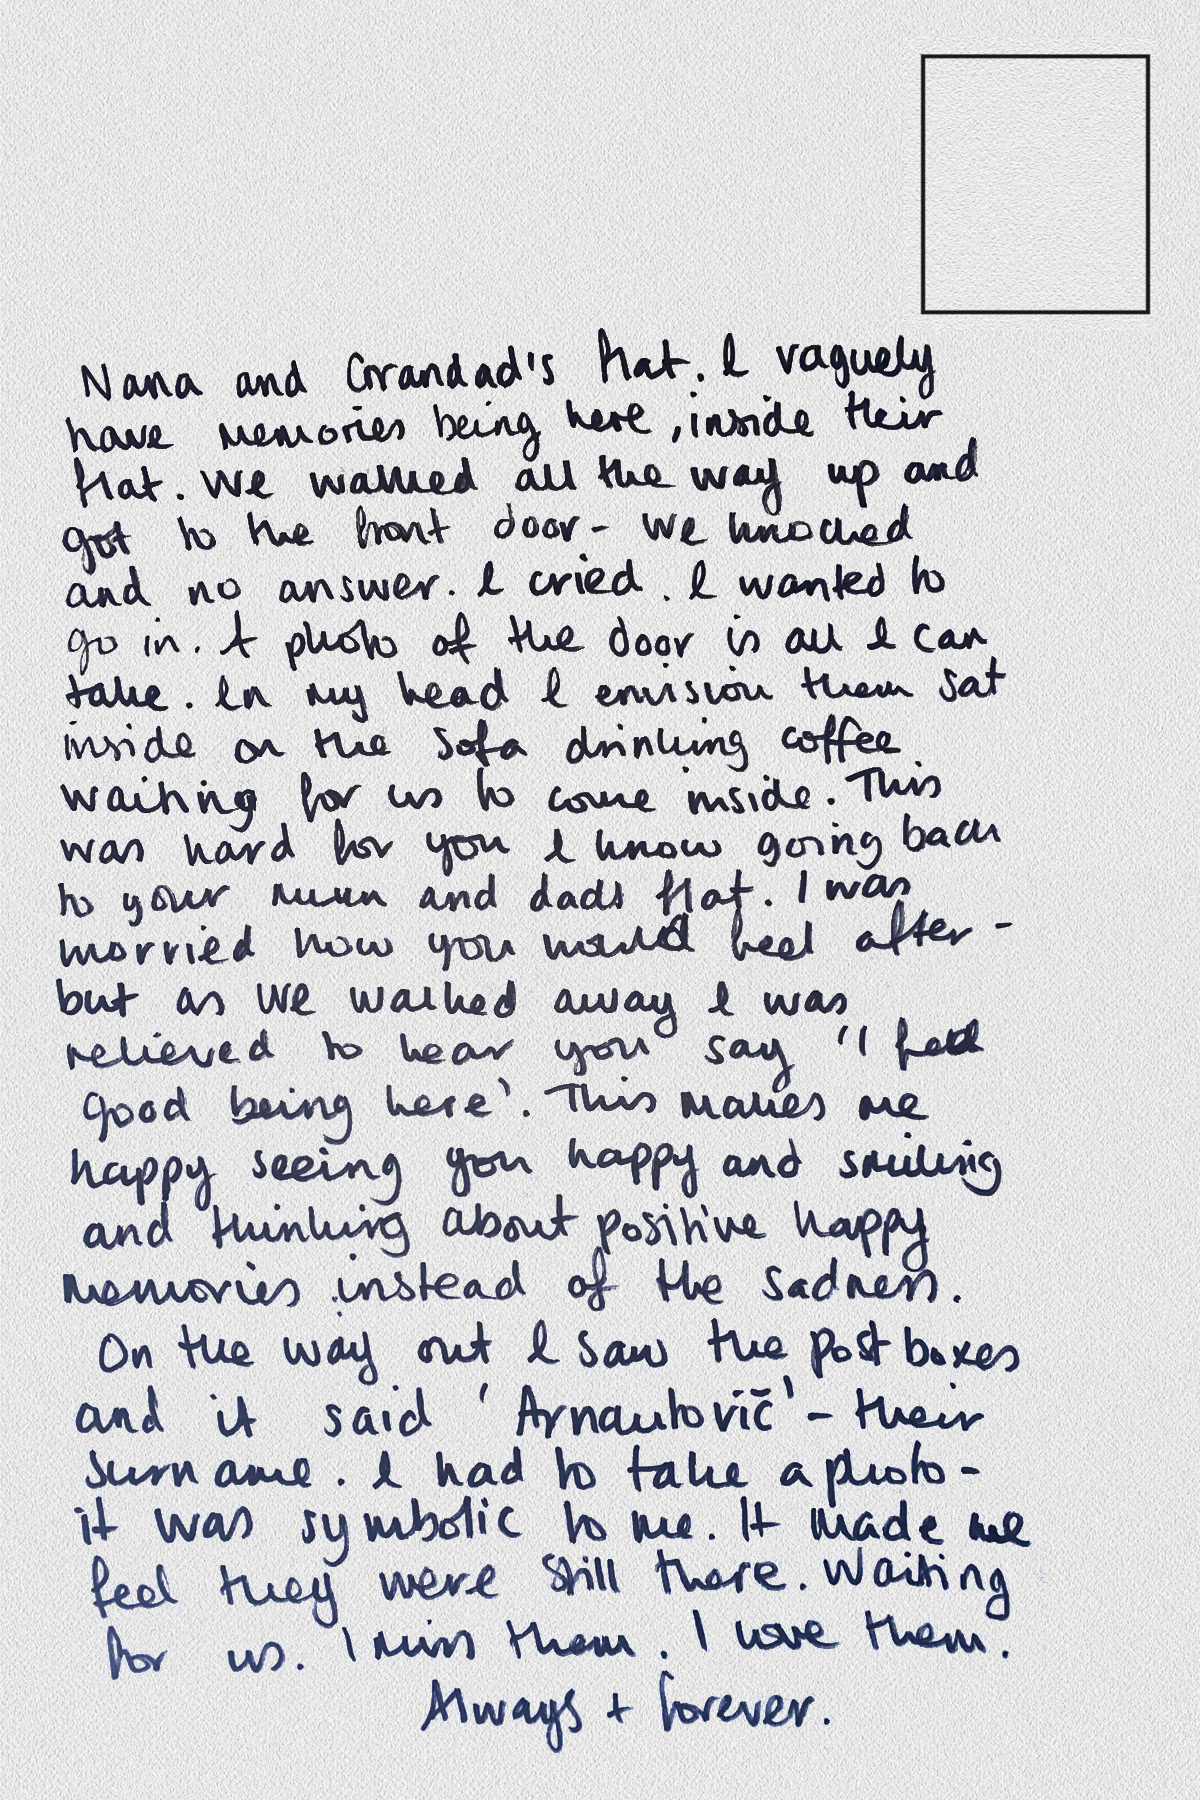 Nana and Grandad's flat. I vaguely
have memories being here, inside their
flat. We walked all the way up and
got to the front door - we knocked
and no answer. I cried. I wanted to
go in. A photo of the door is all I can
take. In my head I envision them sat
inside on the sofa drinking coffee
waiting for us to come inside. This
was hard for you I know going back
to your mum and dads flat. I was
worried how you would feel after -
but as we walked away I was
relieved to hear you say 'I feel
good being here'. This makes me
happy seeing you happy and smiling
and thinking about positive happy
memories instead of the sadness.
On the way out I saw the post boxes
and it said 'Arnautović' - their
surname. I had to take a photo -
it was symbolic to me. It made me
feel they were still there. Waiting
for us. I miss them. I love them.
Always + forever.